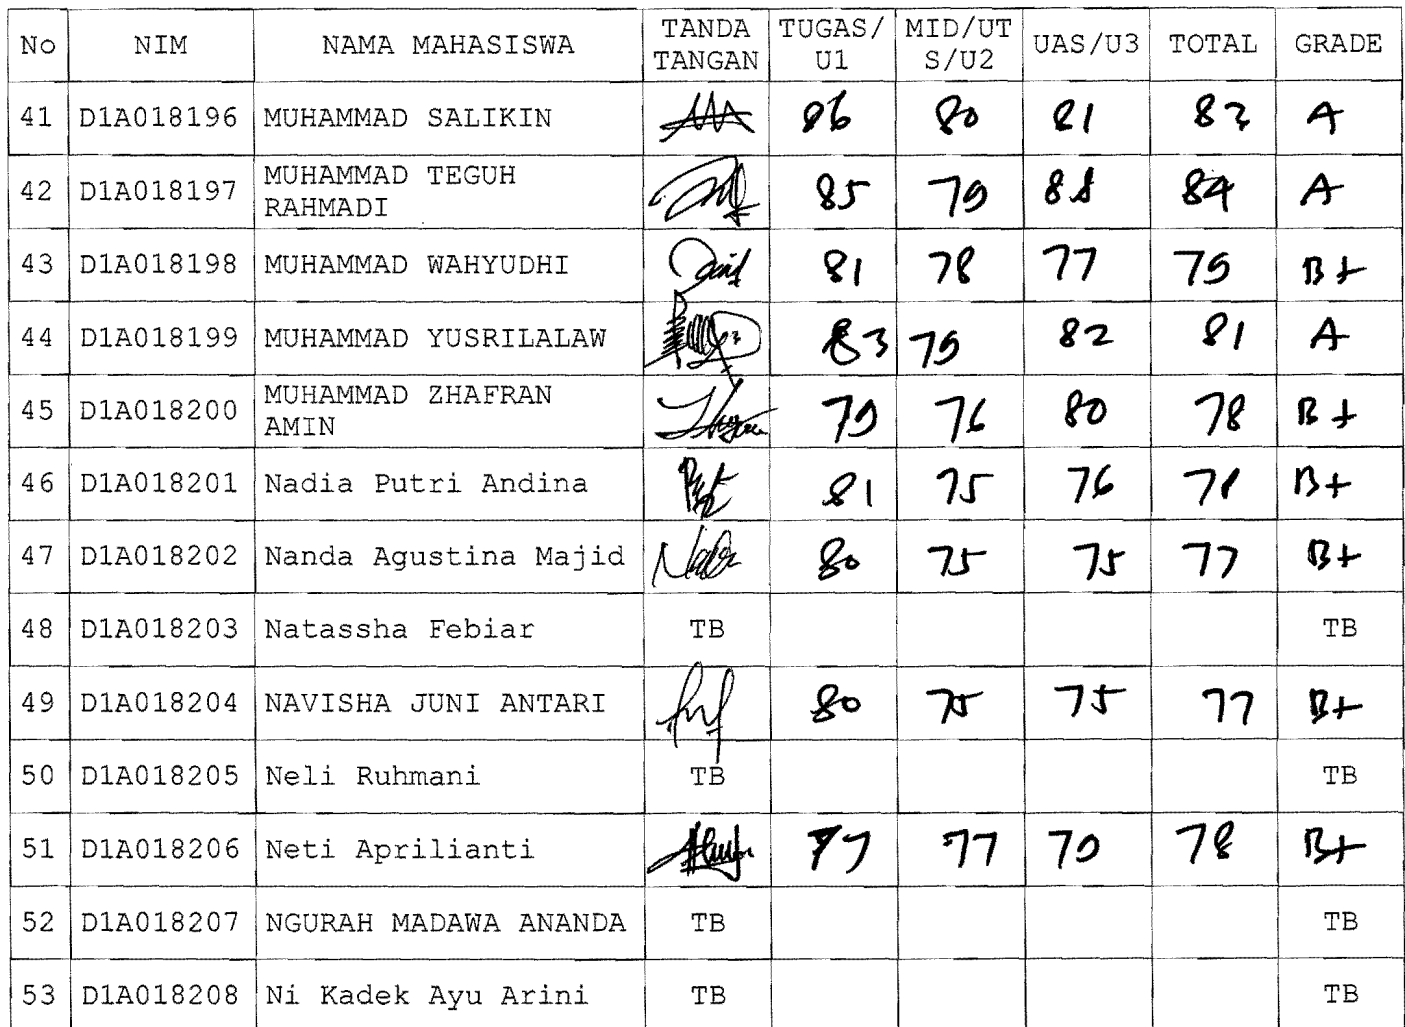 No NIM NAMA MAHASISWA TANDA TANGAN TUGAS/U1 MID/UTS/U2 UAS/U3 TOTAL GRADE
41 D1A018196 MUHAMMAD SALIKIN 86 80 81 82 A
42 D1A018197 MUHAMMAD TEGUH RAHMADI 85 79 88 84 A
43 D1A018198 MUHAMMAD WAHYUDHI 81 78 77 79 B+
44 D1A018199 MUHAMMAD YUSRILALAW 83 79 82 81 A
45 D1A018200 MUHAMMAD ZHAFRAN AMIN 79 76 80 78 B+
46 D1A018201 Nadia Putri Andina 81 75 76 78 B+
47 D1A018202 Nanda Agustina Majid 80 75 75 77 B+
48 D1A018203 Natassha Febiar TB TB
49 D1A018204 NAVISHA JUNI ANTARI 80 75 75 77 B+
50 D1A018205 Neli Ruhmani TB TB
51 D1A018206 Neti Aprilianti 77 77 79 78 B+
52 D1A018207 NGURAH MADAWA ANANDA TB TB
53 D1A018208 Ni Kadek Ayu Arini TB TB